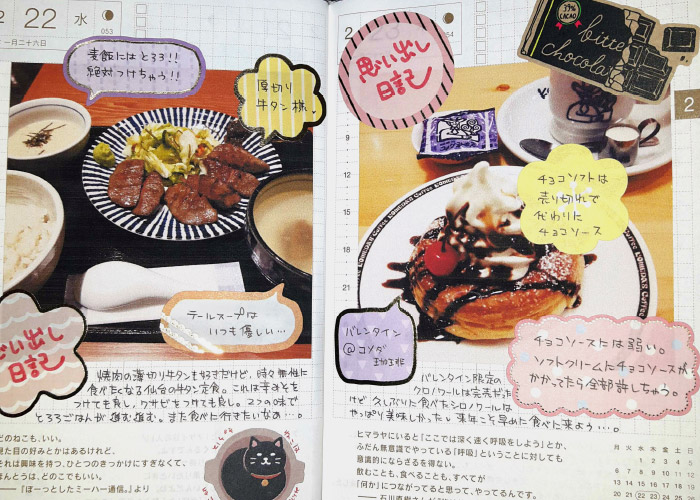 22 水
053
一月二十六日
麦飯にはとろろ!!
絶対つけちゃう!!
厚切り
牛タン様
テールスープは
いつも優しい…
思い出し
日記
焼肉の薄切り牛タンも好きだけど、時々無性に
食べたくなる仙台の牛タン定食。これは辛みそを
つけても良し、ワサビをつけても良し。2つの味で
とろろごはんが進む進む。また食べに行きたいなの…。
どのねこもいい。
見た目の好みとかはあるけれど、
それは興味を持つ、ひとつのきっかけにすぎなくて、
ほんとうは、どのこもいい。
『ぼーっとしたミーハー通信。』より
思い出し
日記
39%
CACAO
bitter
chocola
2
9
12
15
18
21
チョコソフトは
売り切れで
代わりに
チョコソース
バレンタイン
@コメダ
珈琲
チョコソースには弱い。
ソフトクリームにチョコソースが
かかってたら全部許しちゃう。
バレンタイン限定の
クロノワールは完売だった
けど久しぶりに食べたシロノワールは
やっぱり美味しかった。来年こそ早めに食べに来よう…。
ヒマラヤにいると「ここでは深く速く呼吸をしよう」とか、
ふだん無意識でやっている「呼吸」ということに対しても
意識的にならざるを得ない。
飲むことも、食べることも、すべてが
「何か」につながってると思って、やってるんです。
月 火 水 木 金 土 日
1 2 3 4 5